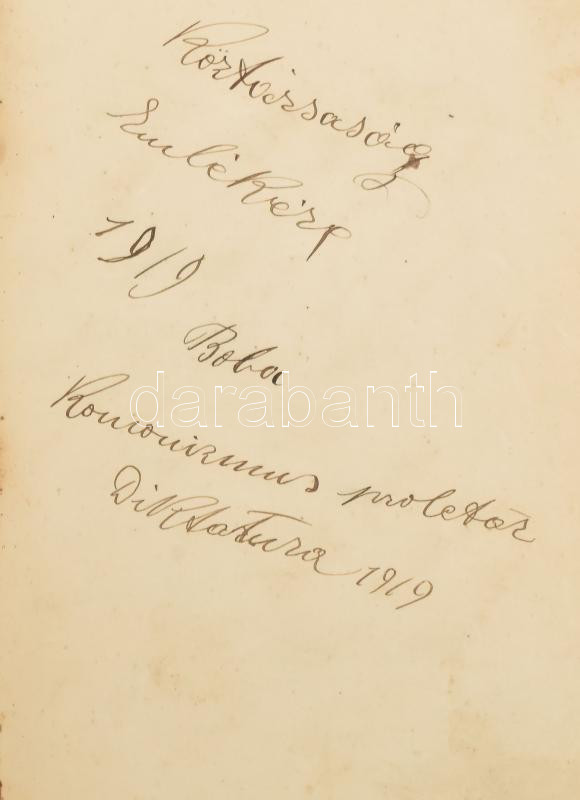 Köztársaság
Emlékére
1919
Boba
darabanth
Komonizmus proletár
Diktatura 1919